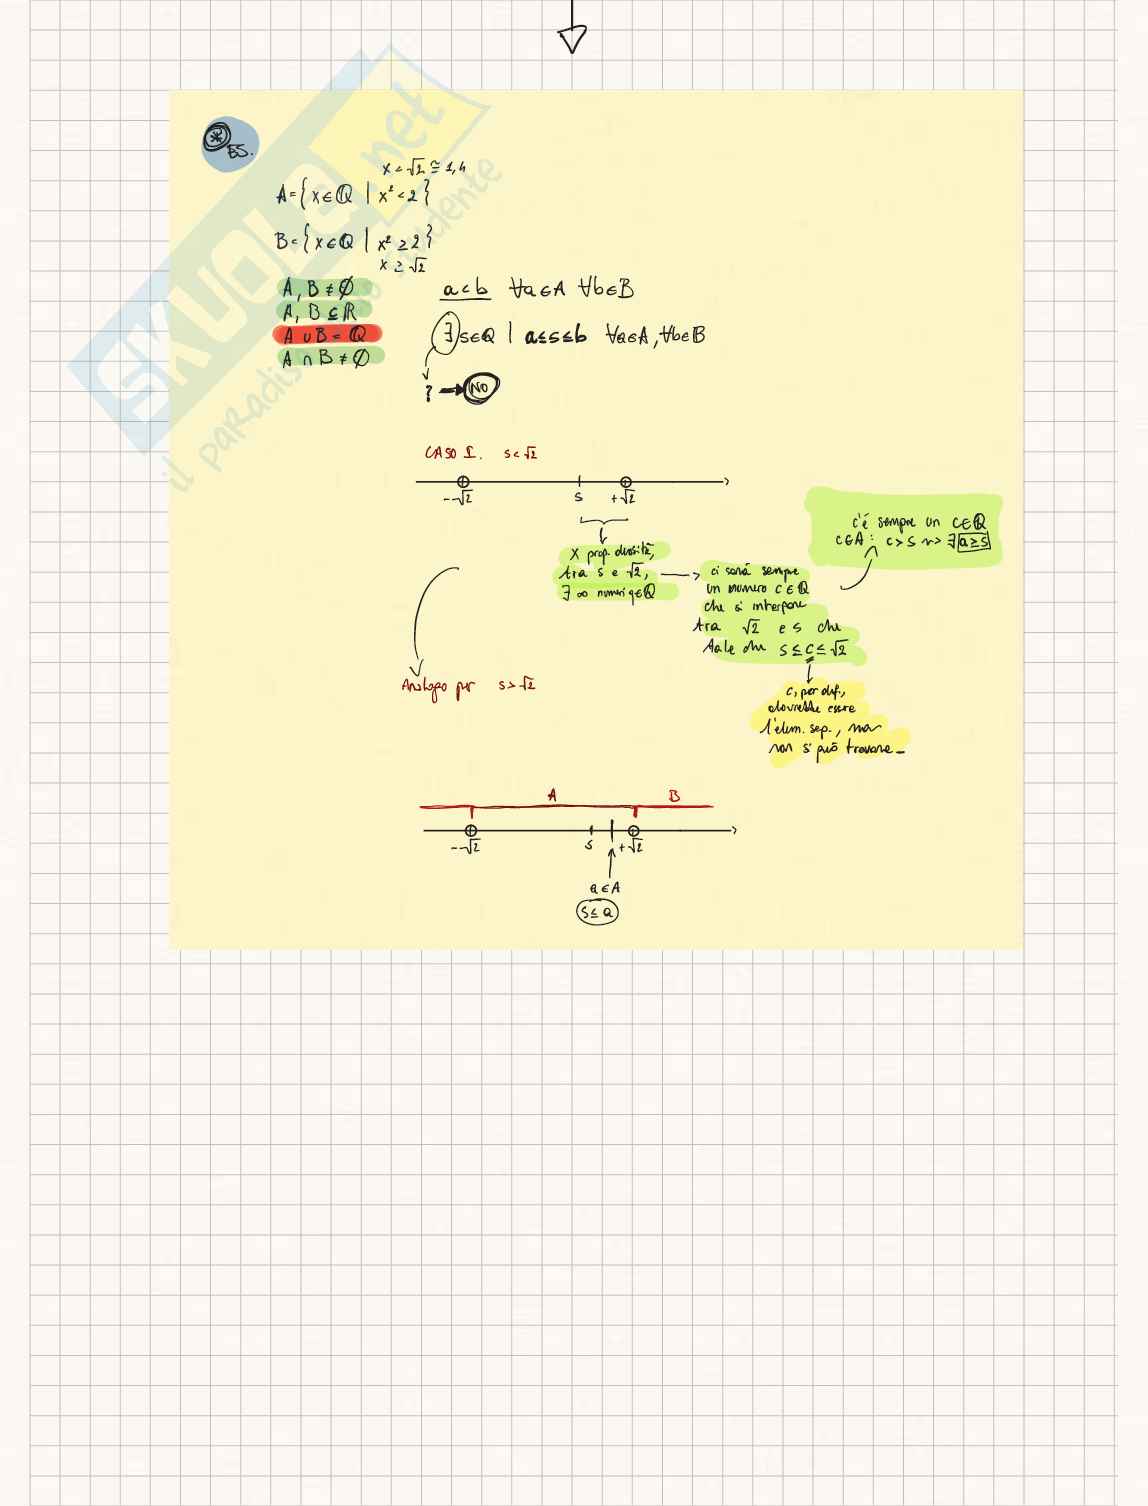 * ES.
x < √2 ≅ 1,4
A = { x ∈ ℚ | x² < 2 }
B = { x ∈ ℚ | x² ≥ 2 }
x ≥ √2
A, B ≠ ∅
A, B ⊆ ℝ
A ∪ B = ℚ
A ∩ B ≠ ∅
a < b ∀a ∈ A ∀b ∈ B
∃ s ∈ ℚ | a ≤ s ≤ b ∀a ∈ A, ∀b ∈ B
? → NO
CASO 1. s < √2
-√2 s +√2
X prop. densità,
tra s e √2,
∃ ∞ numeri q ∈ ℚ
ci sarà sempre
un numero c ∈ ℚ
che si interpone
tra √2 e s che
tale che s ≤ c ≤ √2
c'é sempre un c ∈ ℚ
c ∈ A : c > s ~> ∃ a ≥ s
c, per def.,
dovrebbe essere
l'elem. sep., ma
non si può trovare_
Analogo per s > √2
A B
-√2 s +√2
a ∈ A
s ≤ a
SKUOLA.net
il paradiso dello studente